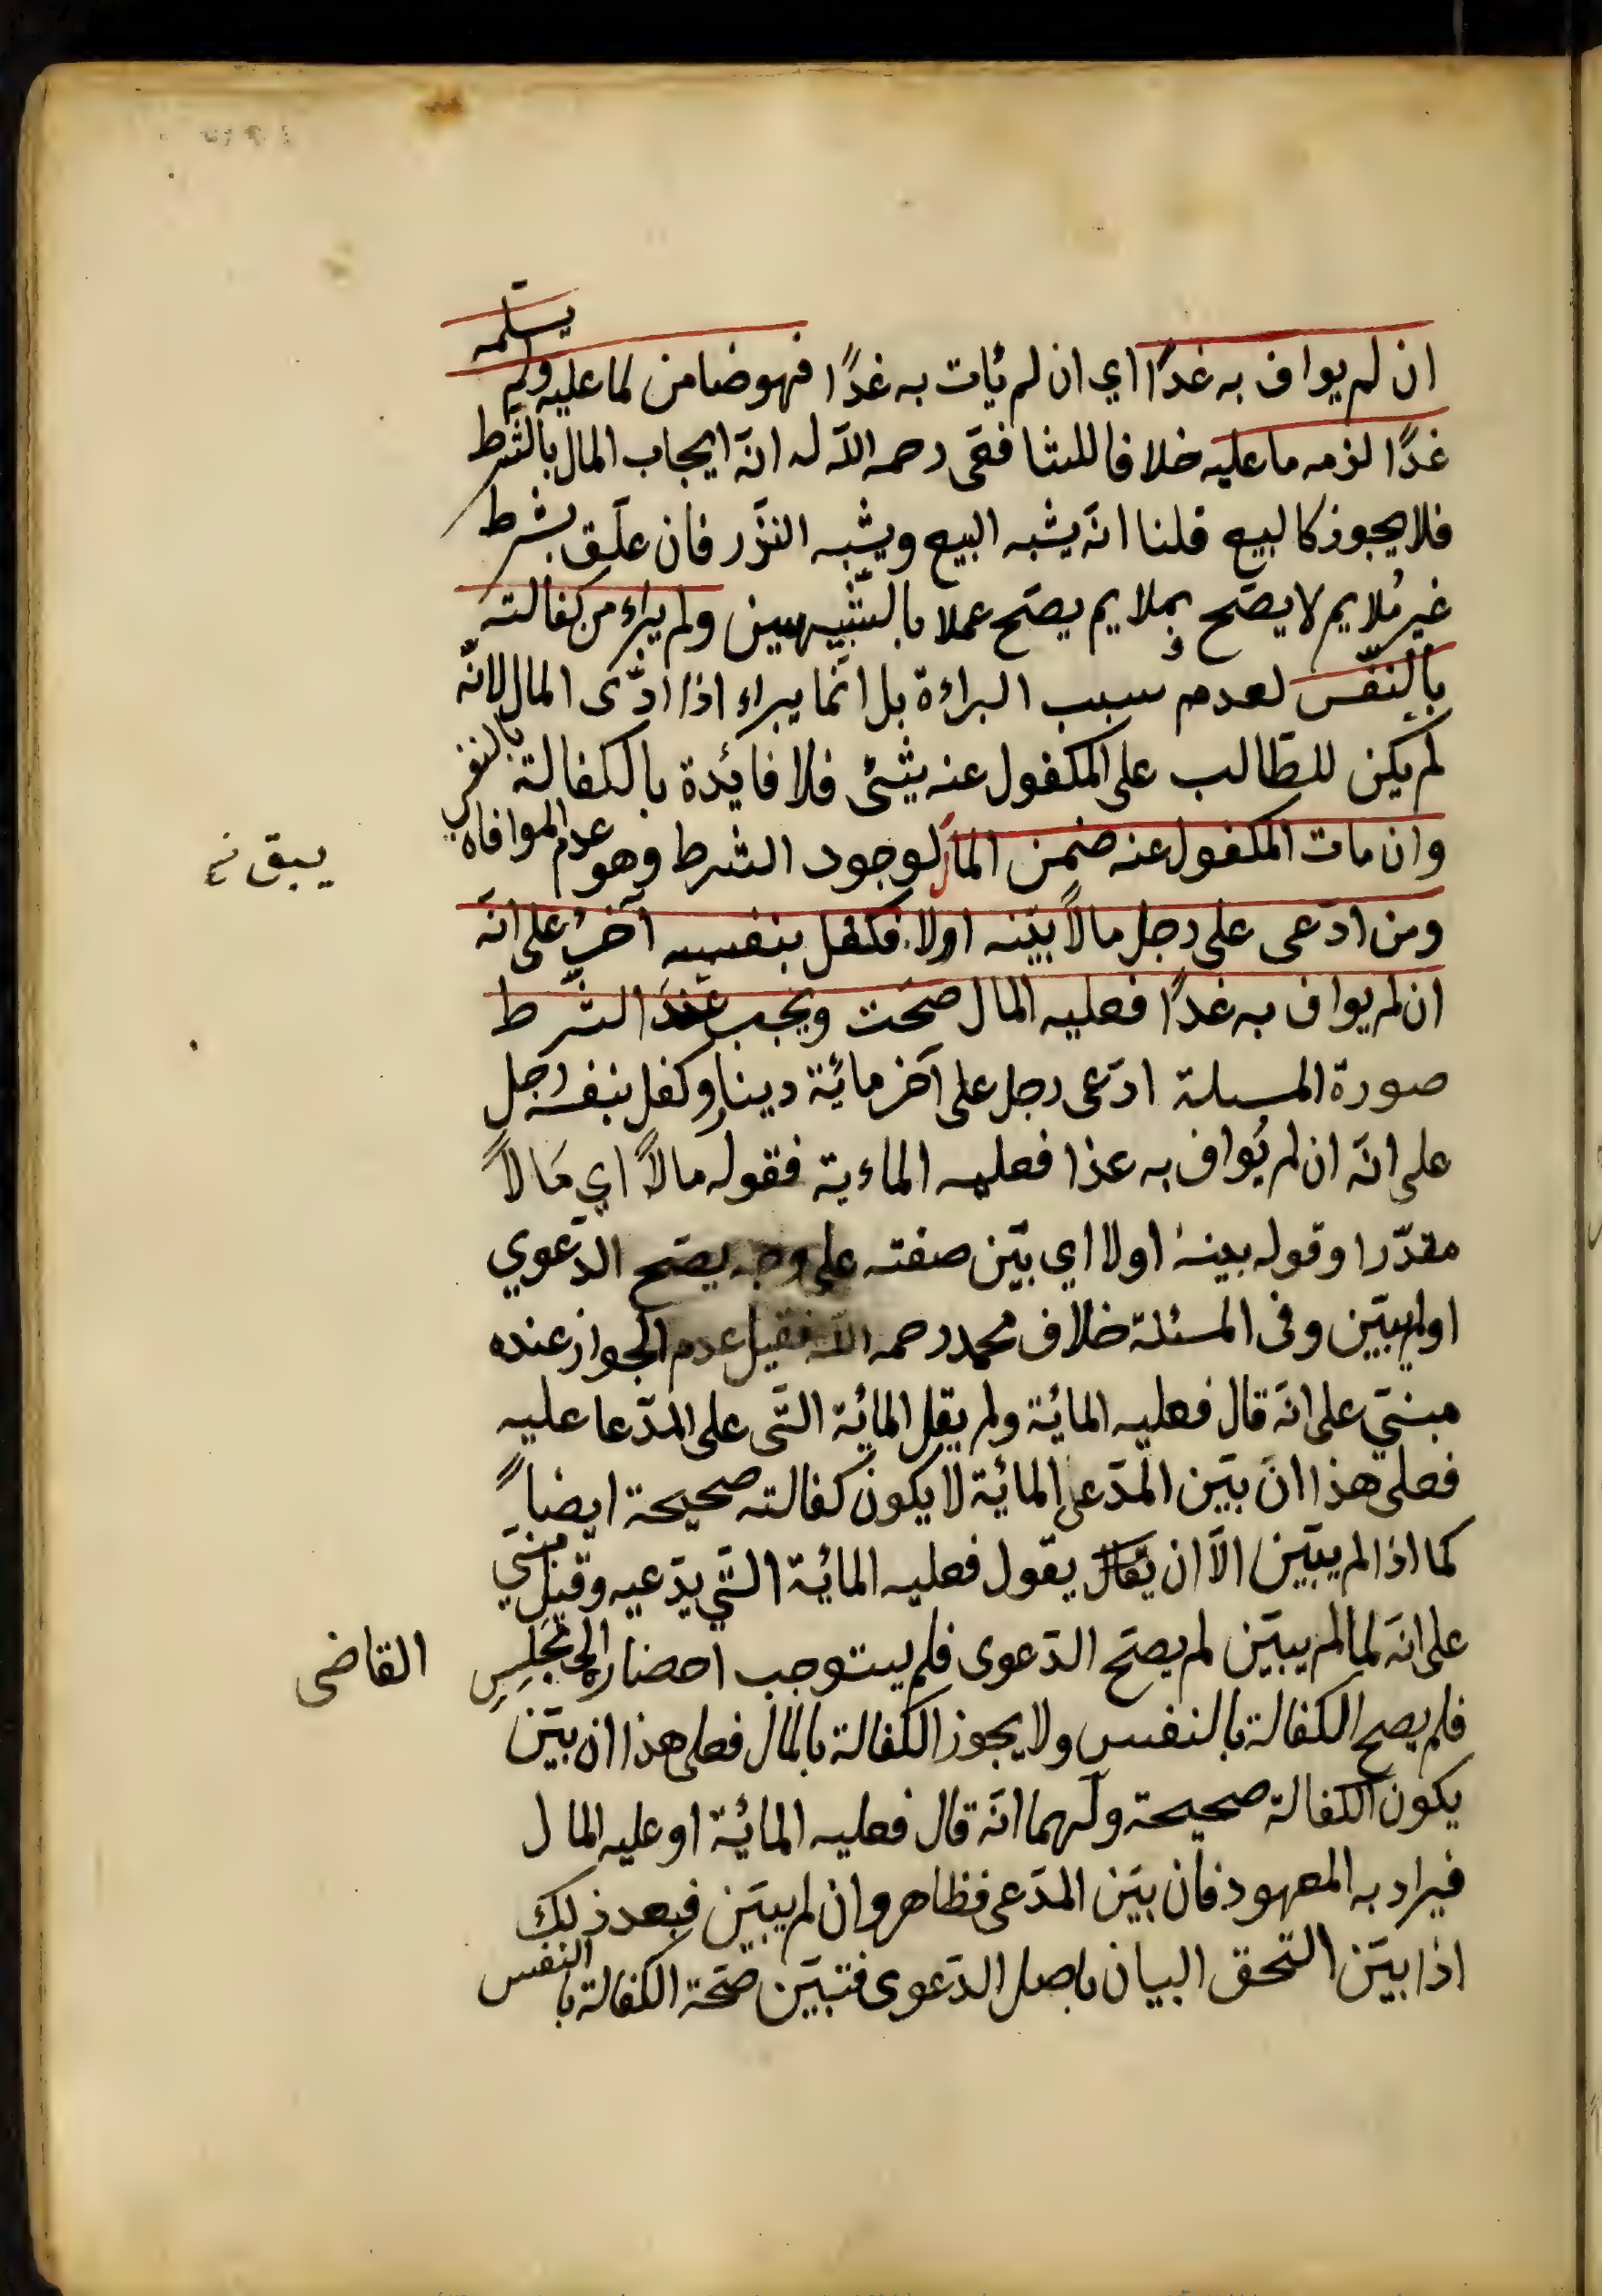 ان لم يواف به غدًا اي ان لم يأت به غدًا فهو ضامن لما عليه ولم يسلّمه
غدًا لزمه ما عليه خلافا للشافعّى رحمه اللّه له انّه ايجاب المال بالشّرط
فلا يجوز كالبيع قلنا انّه يشبه البيع ويشبه النزّر فان علّق بشرط
غير مُلايم لا يصّح وبملايم يصّح عملا بالشّبيهين ولم يبراء من كفالته
بالنفّس لعدم سبب البراءة بل انّما يبراء اذا ادّى المال لانّه
لم يكن للطّالب على المكفول عنه شئ فلا فائدة بالكفالة بالنفس
وان مات المكفول عنه ضمن المال لوجود الشرط وهو عدم الموافاه
يبق نخ
ومن ادّعى على رجل مالاً بيّنه اولا فكفل بنفسه آخر على انّه
ان لم يواف به غدًا فعليه المال صحّت ويجب عند الشّرط
صورة المسىلة ادّعى رجل على آخر مائة دينار وكفل بنفسه رجل
على انّه ان لم يُواف به غدا فعليه الماءية فقوله مالاً اي مَالاً
مقدّرا وقوله بينه اولا اي بيّن صفته على وجه يصّح الدّعوي
اولم يبيّن وفى المسئلة خلاف محمد رحمه اللّه فقيل عدم الجواز عنده
مبنيّ على انّه قال فعليه المائة ولم يقل المائة التّى على المدّعا عليه
فعلى هذا انّ بيّن المدّعى المائة لا يكون كفالته صحيحة ايضاً
كما اذا لم يبيّن الاّ ان يقال يقول فعليه المائة التّي يدّعيه وقيل مبنيّ
على انّه لما لم يبيّن لم يصّح الدّعوى فلم يستوجب احضاره الى مجلس القاضى
فلم يصح الكفالة بالنفس ولا يجوز الكفالة بالمال فعلى هذا ان بيّن
يكون الكفالة صحيحة ولهما انّه قال فعليه المائة او عليه المال
فيراد به المعهود فان بيّن المدّعى فظاهر وان لم يبيّن فبعد ذلك
اذا بيّن التحق البيان باصل الدّعوى فتبيّن صحّة الكفالة بالنفس